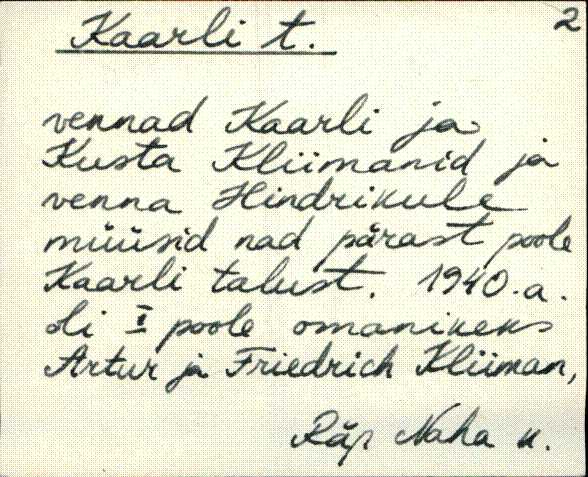 Kaarli t.
2
vennad Kaarli ja
Kusta Kliimanid ja
venna Hindrikule
müüsid nad pärast poole
Kaarli talust. 1940.a.
oli I poole omanikeks
Artur ja Friedrich Kliiman,
Räp Naha k.